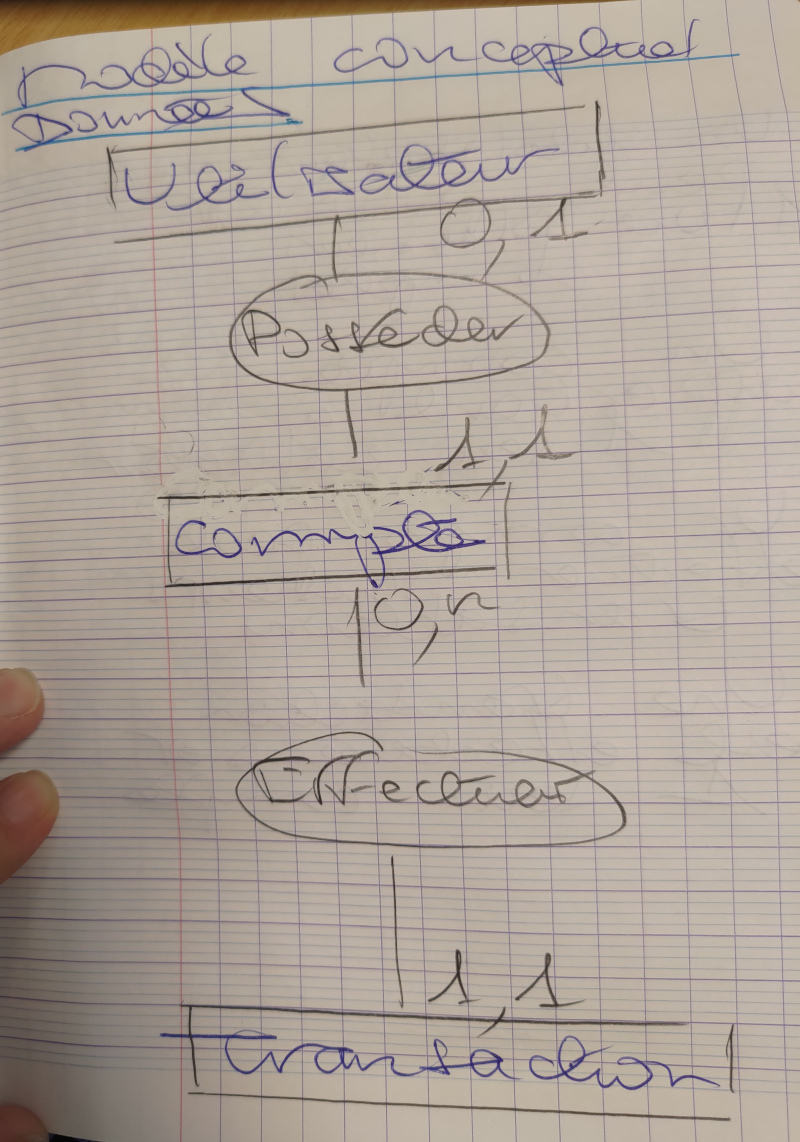 Modèle conceptuel
Données
Utilisateur
0,1
Posséder
1,1
Compte
0,n
Effectuer
1,1
Transaction